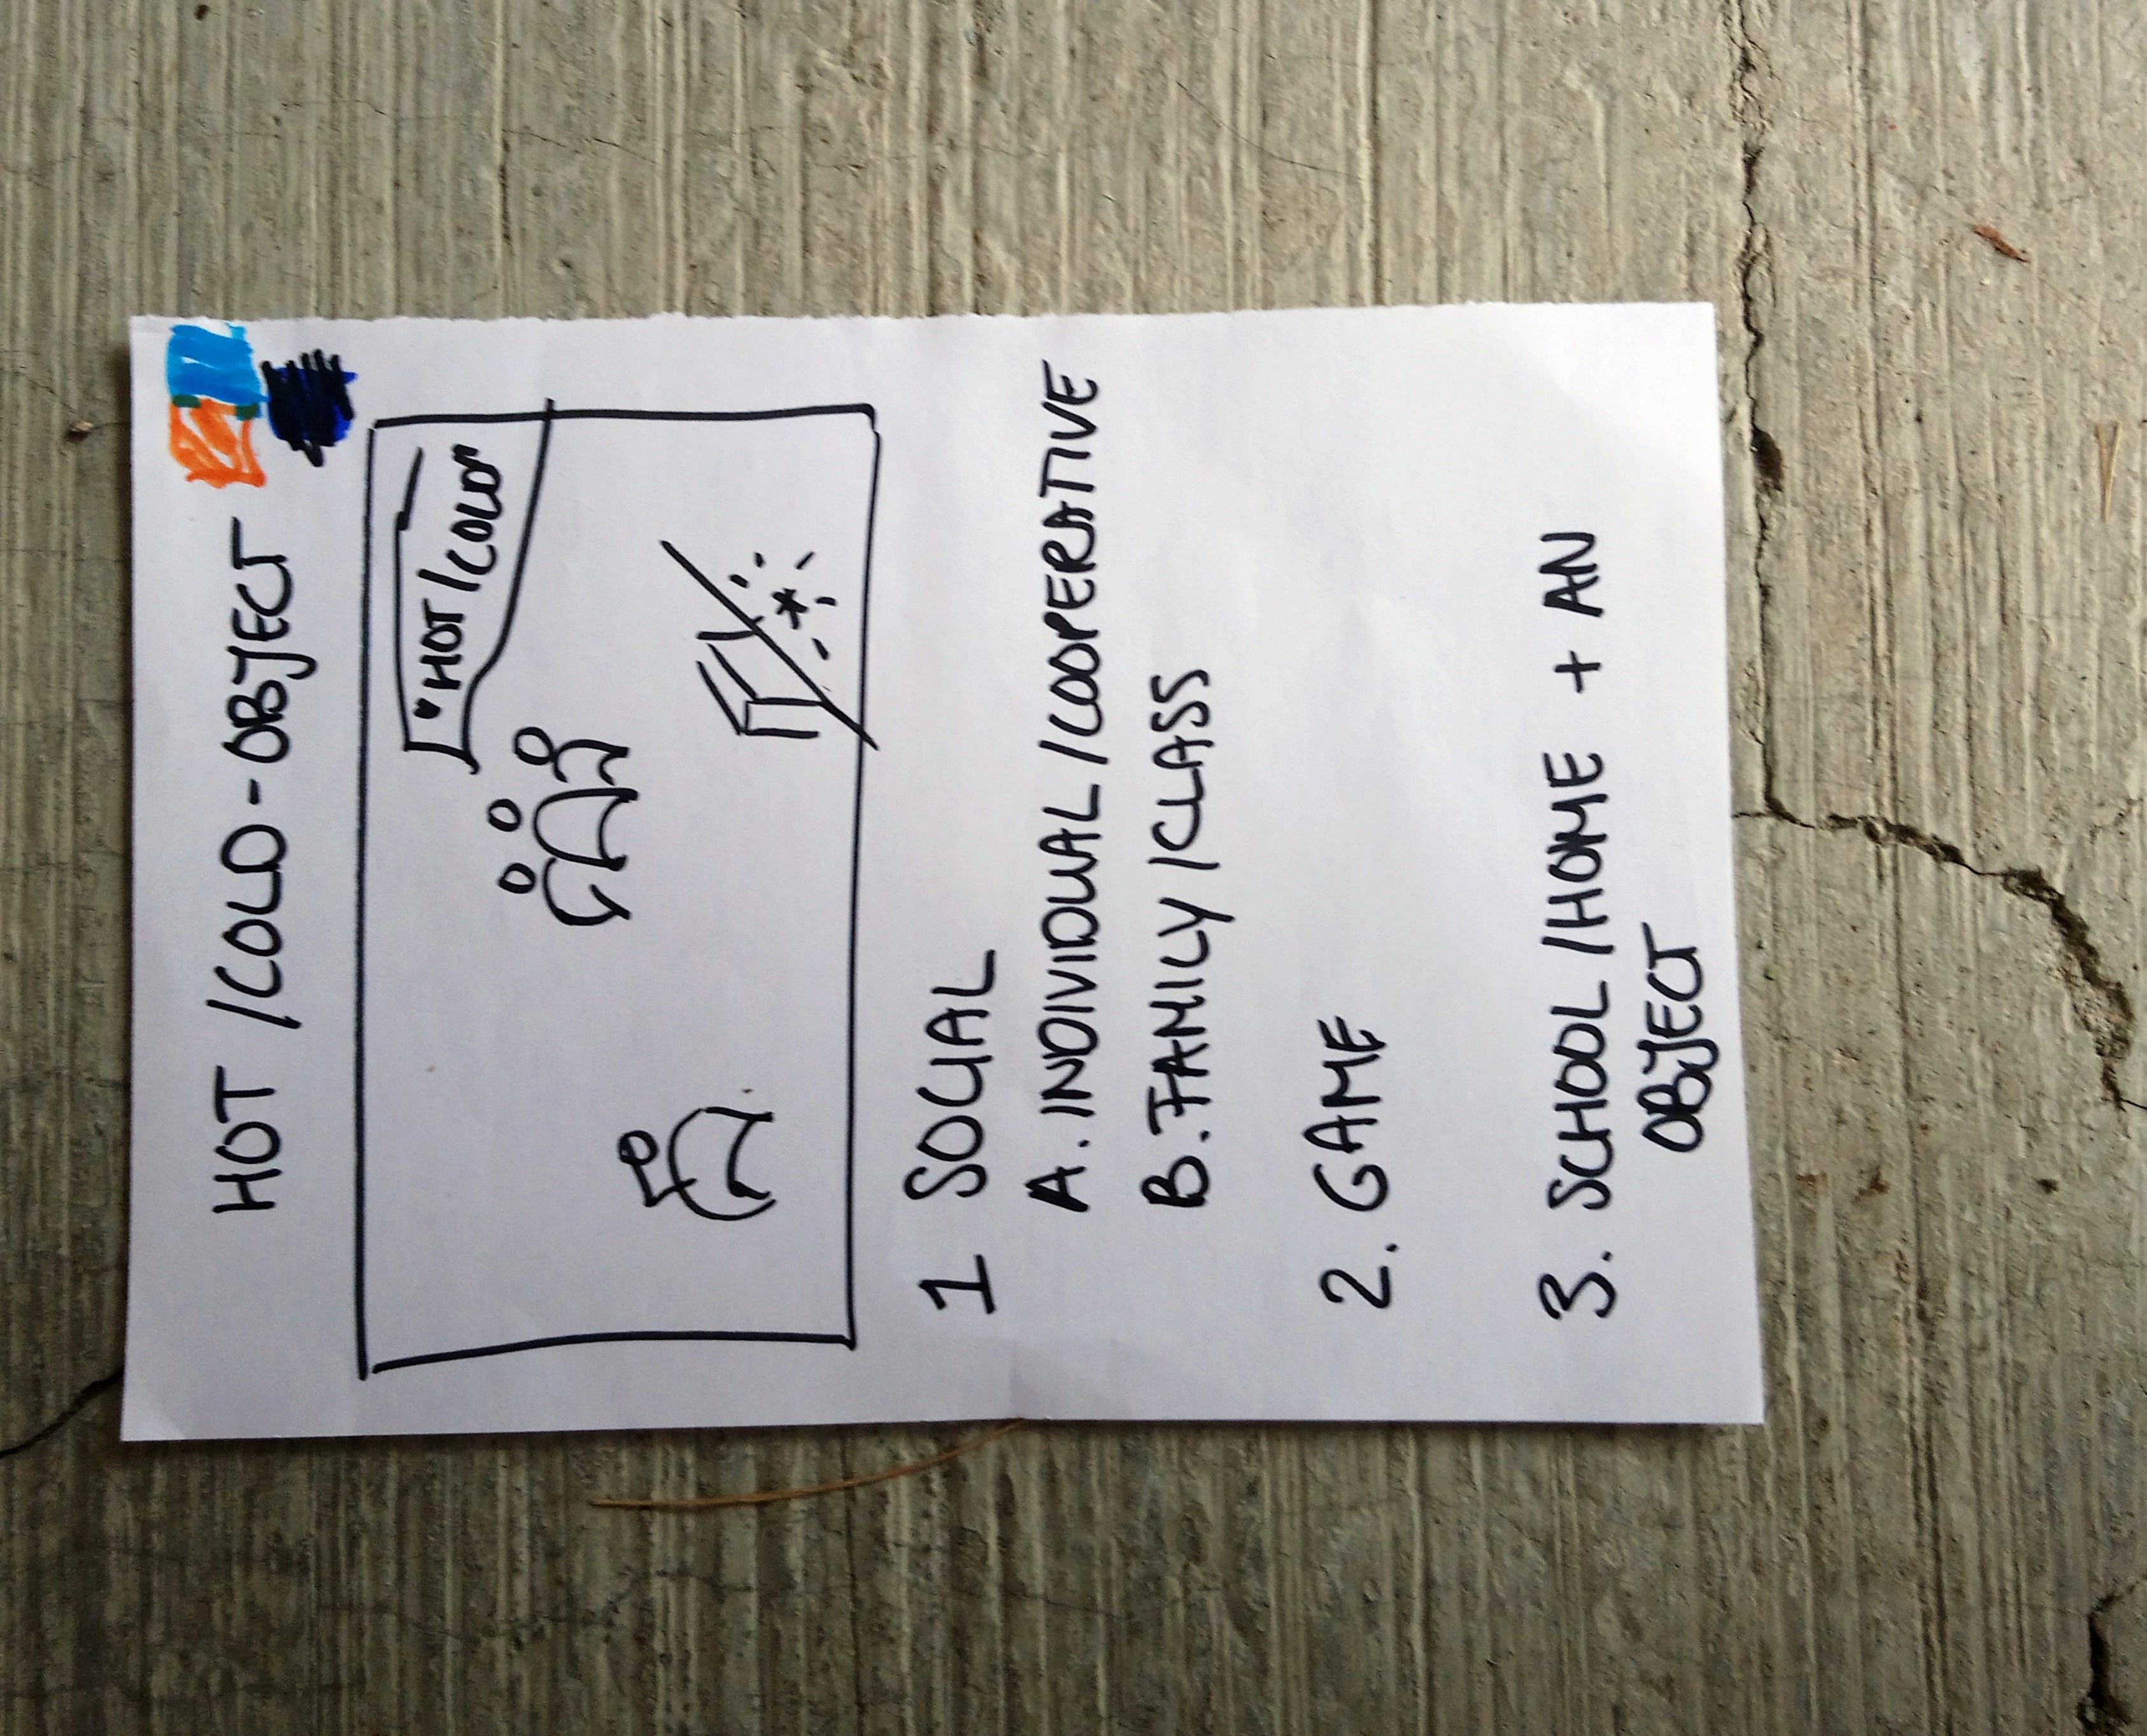 HOT /COLD-OBJECT
"HOT/COLD"
1 SOCIAL
A. INDIVIDUAL/COOPERATIVE
B. FAMILY/CLASS
2. GAME
3. SCHOOL/HOME + AN
OBJECT